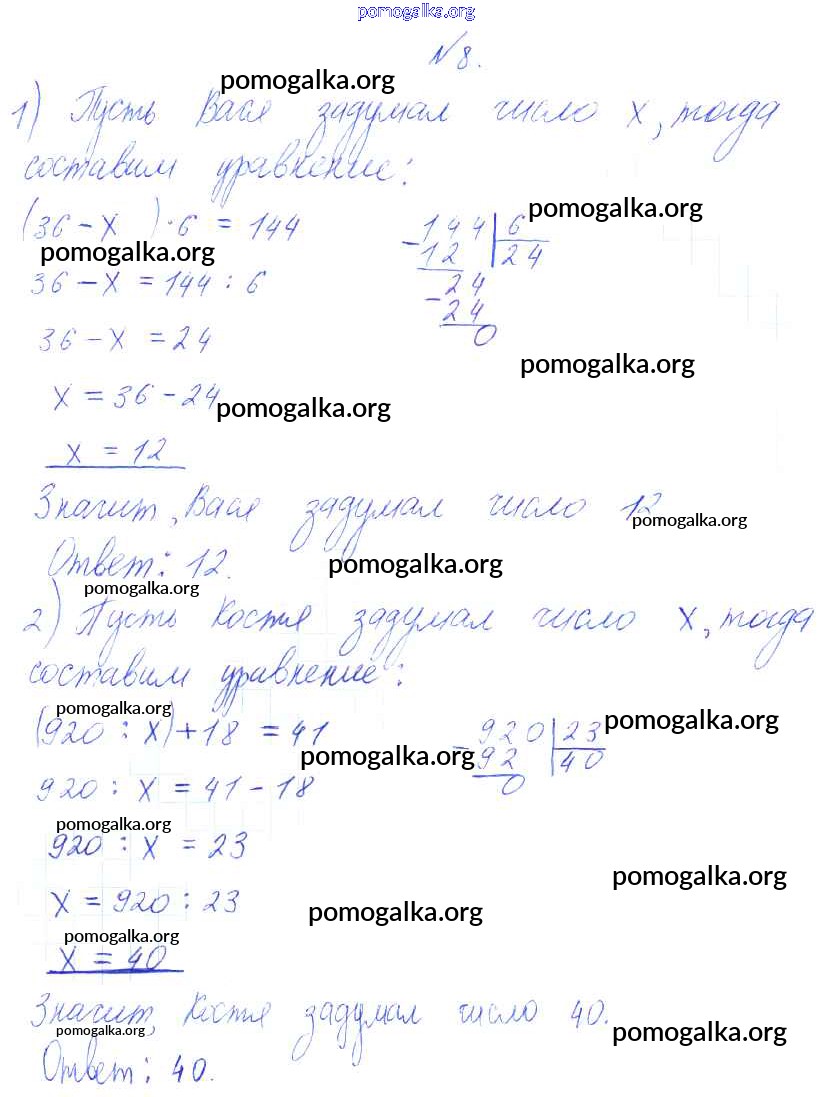 pomogalka.org
№8.
pomogalka.org
1) Пусть Вася задумал число x, тогда
составим уравнение:
pomogalka.org
(36 - x ) · 6 = 144
144 | 6
- 12 | 24
pomogalka.org
36 - x = 144 : 6
24
- 24
0
36 - x = 24
pomogalka.org
x = 36 - 24
pomogalka.org
x = 12
Значит, Вася задумал число 12
pomogalka.org
Ответ: 12.
pomogalka.org
pomogalka.org
2) Пусть Костя задумал число x, тогда
составим уравнение:
pomogalka.org
(920 : x) + 18 = 41
920 | 23
- 92 | 40
0
pomogalka.org
pomogalka.org
920 : x = 41 - 18
pomogalka.org
920 : x = 23
pomogalka.org
x = 920 : 23
pomogalka.org
pomogalka.org
x = 40
Значит, Костя задумал число 40.
pomogalka.org
pomogalka.org
Ответ: 40.